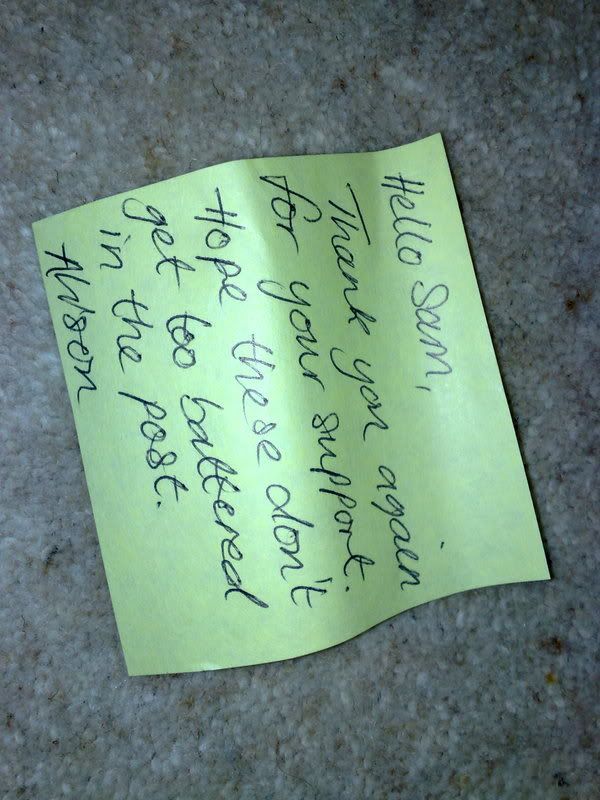 Hello Sam,
Thank you again
for your support.
Hope these don't
get too battered
in the post.
Alison